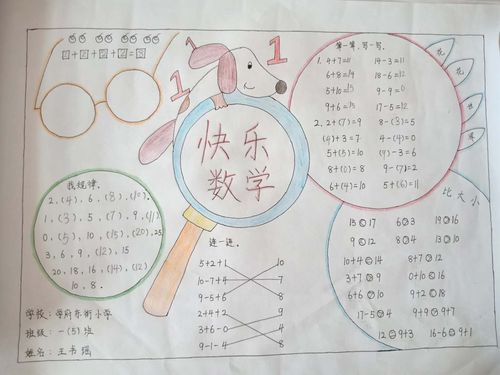 2+2+2+2=8
1
1
快乐
数学
算一算,写一写。
1. 4+7=11 14-3=11
6+8=14 18-6=12
5+10=15 9-9=0
9+6=15 17-5=12
2. 2+(7)=9 8-(3)=5
(4)+3=7 4-(4)=0
5+(5)=10 (4)-3=6
8+(0)=8 9-(7)=2
6+(4)=10 5+(6)=11
找规律。
2,(4),6,(8),(10)。
1,(3),5,(7),9,(11)
0,(5),10,(15),(20),25
3,6,9,(12),15
20,18,16,(14),(12)
10,8.
连一连。
5+2+1 10
10-7+4 7
9-5+6 8
2+4+2 9
3+6-0 4
9-1-4 8
比大小
13<17 6>3 19>16
9<12 8>4 13>10
10+4=14 8+7>12
3+7>9 0+10<16
6+6>10 9+2<18
17-5>4 9+9>9+7
12=9+3 16-6=9+1
学校:学府东街小学
班级:一(5)班
姓名:王书瑶